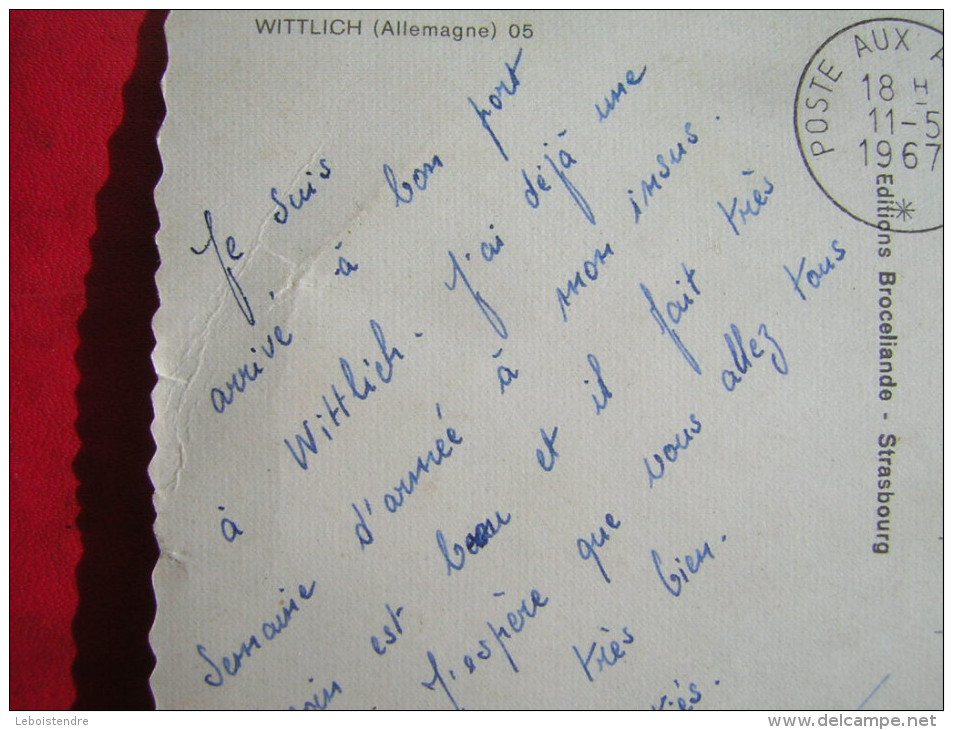 WITTLICH (Allemagne) 05
POSTE AUX
18 H
11-5
1967
*
Editions Broceliande - Strasbourg
Je suis
arrivé à bon port
à Wittlich. J'ai déjà une
Semaine d'armée à mon insus.
est beau et il fait très
J'espère que vous allez tous
très bien.
Leboistendre
www.delcampe.net